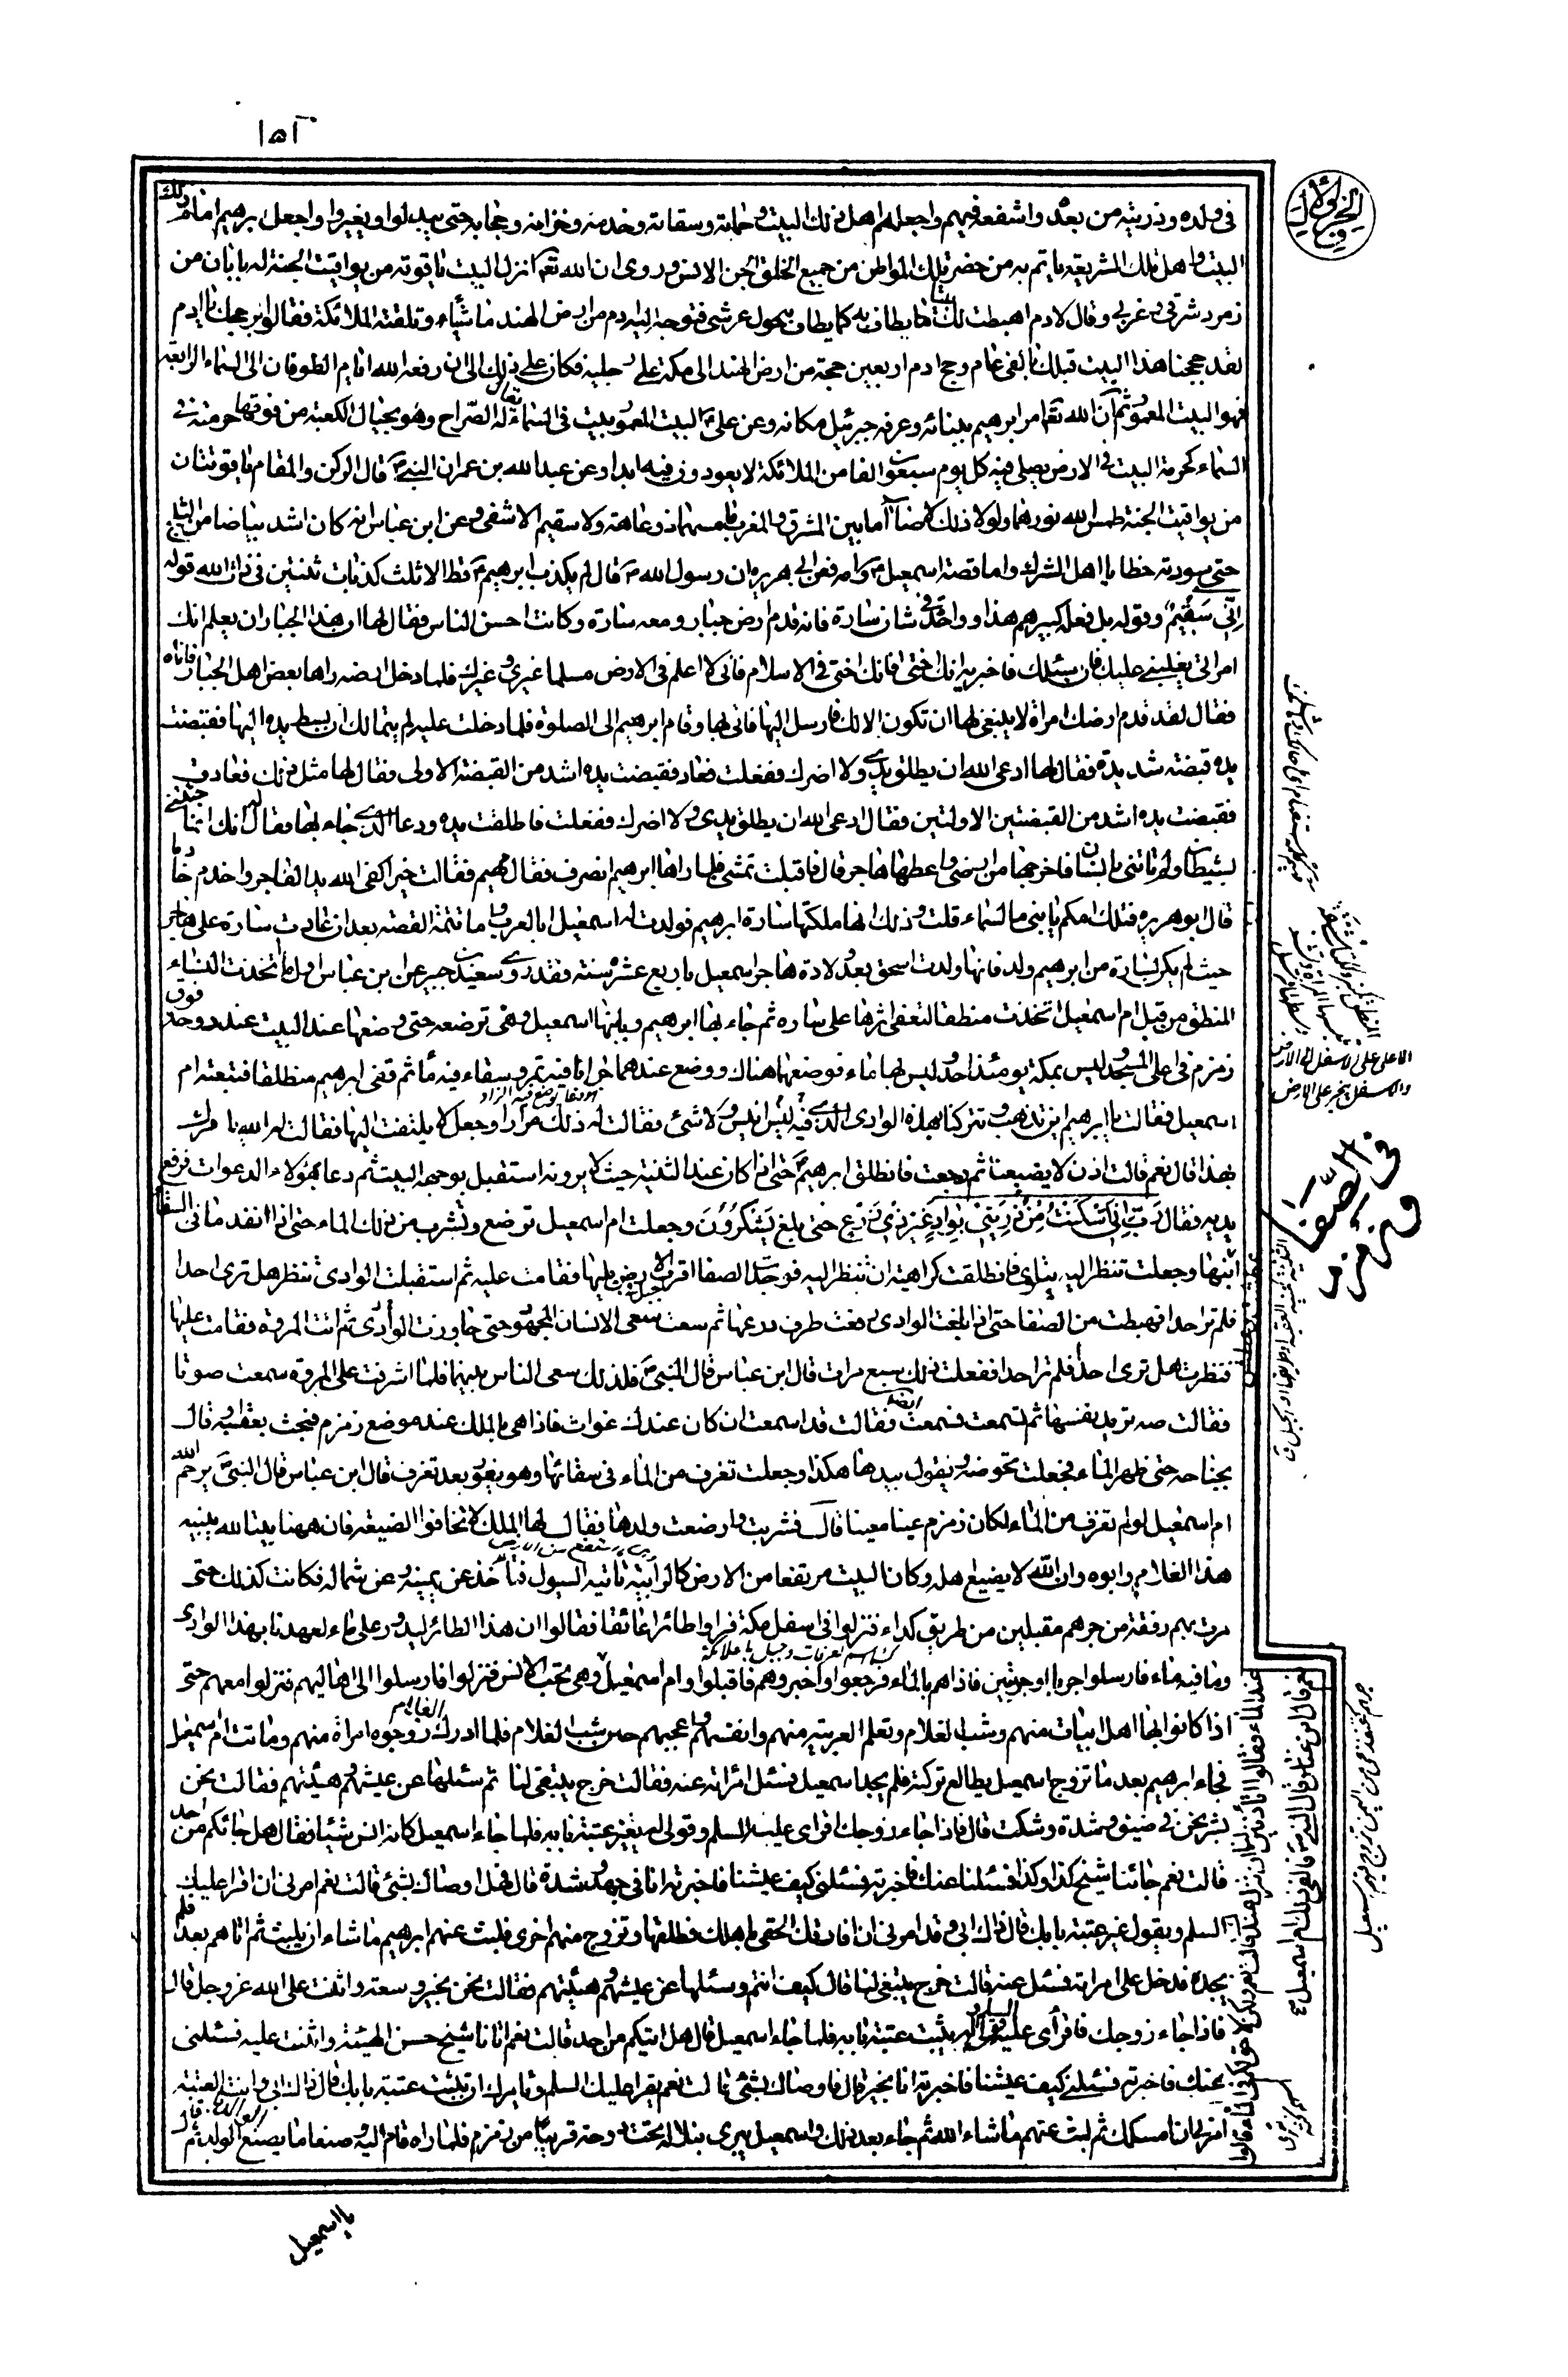 ١٥٢
الجزء الاول
فى ولده وذريته من بعده واشفعه فيهم واجعلهم اهل ذلك البيت وحماته وسقاته وخدمه وخزانه وحجابه حتى يبدلوا ويغيروا واجعل ابرهيم امام ذلك
البيت واهل تلك الشريعة ياتم به من حضر تلك المواطن من جميع الخلق الجن والانس وروى ان الله تعا انزل البيت ياقوتة من يواقيت الجنة له بابان من
زمرد شرقى وغربى وقال لادم اهبطت لك بيتا يطاف به كما يطاف حول عرشى فتوجه اليه ادم من ارض الهند ماشيا وتلقته الملائكة فقالوا بر حجك يا ادم
لقد حججنا هذا البيت قبلك بالفى عام وحج ادم اربعين حجة من ارض الهند الى مكة على رجليه فكان على ذلك الى ان رفعه الله ايام الطوفان الى السماء الرابعة
فهو البيت المعمور ثم ان الله تعا امر ابرهيم ببنائه وعرفه جبرئيل مكانه وعن على البيت المعمور بيت فى السماء يقال له الضراح وهو بحيال الكعبة من فوقها حرمته فى
السماء كحرمة البيت فى الارض يصلى فيه كل يوم سبعون الفا من الملائكة لا يعودون فيه ابدا وعن عبد الله بن عمر ان النبى قال الركن والمقام ياقوتتان
من يواقيت الجنة طمس الله نورهما ولولا ذلك لاضاءا ما بين المشرق والمغرب ما مسهما ذو عاهة ولا سقيم الا شفى وعن ابن عباس انه كان اشد بياضا من الثلج
حتى سودته خطايا اهل الشرك واما قصة اسمعيل وامه فعن ابى هريرة ان رسول الله قال لم يكذب ابرهيم قط الا ثلث كذبات ثنتين فى ذات الله قوله
اِنّى سَقيمٌ وقوله بل فعله كبيرهم هذا وواحدة فى شان سارة فانه قدم ارض جبار ومعه سارة وكانت احسن الناس فقال لها ان هذا الجبار ان يعلم انك
امراتى يغلبنى عليك فان سئلك فاخبريه انك اختى فانك اختى فى الاسلام فانى لا اعلم فى الارض مسلما غيرى وغيرك فلما دخل ارضه راها بعض اهل الجبار فاتاه
فقال لقد قدم ارضك امراة لا ينبغى لها ان تكون الا لك فارسل اليها فاتى بها وقام ابرهيم الى الصلوة فلما دخلت عليه لم يتمالك ان بسط يده اليها فقبضت
يده قبضة شديدة فقال لها ادعى الله ان يطلق يدى ولا اضرك ففعلت فعاد فقبضت يده اشد من القبضة الاولى فقال لها مثل ذلك فعاد
فقبضت يده اشد من القبضتين الاولتين فقال ادعى الله ان يطلق يدى ولا اضرك ففعلت فاطلقت يده ودعا الذى جاء بها فقال له انك انما جئتنى
بشيطان ولم تاتنى بانسان فاخرجها من ارضى واعطها هاجر قال فاقبلت تمشى فلما راها ابرهيم انصرف فقال مهيم فقالت خيرا كفى الله يد الفاجر واخدم خادما
قال ابو هريرة فتلك امكم يا بنى ماء السماء قلت وذلك انها ملكتها سارة ابرهيم فولدت له اسمعيل ابا العرب واما تتمة القصة بعد ان غارت سارة على هاجر
حيث لم يكن لسارة من ابرهيم ولد فانها ولدت اسحق بعد ولادة هاجر اسمعيل باربع عشرة سنة فقد روى سعيد بن جبير عن ابن عباس اول ما اتخذت النساء
المنطق من قبل ام اسمعيل اتخذت منطقا لتعفى اثرها على سارة ثم جاء بها ابرهيم وبابنها اسمعيل وهى ترضعه حتى وضعها عند البيت عند دوحة فوق
زمزم فى اعلى المسجد وليس بمكة يومئذ احد وليس بها ماء فوضعها هناك ووضع عندهما جرابا فيه تمر وسقاء فيه ماء ثم قفى ابرهيم منطلقا فتبعته ام
اسمعيل فقالت يا ابرهيم اين تذهب وتتركنا بهذه الوادى الذى ليس فيه انيس ولا شئ فقالت له ذلك مرارا وجعل لا يلتفت اليها فقالت له الله امرك
بهذا قال نعم قالت اذن لا يضيعنا ثم رجعت فانطلق ابرهيم حتى اذا كان عند الثنية حيث لا يرونه استقبل بوجهه البيت ثم دعا بهؤلاء الدعوات فرفع
يديه فقال رَبِّ اِنّى اَسْكَنْتُ مِنْ ذُرِّيَّتى بِوادٍ غَيْرِ ذى زَرْعٍ حتى بلغ يَشْكُرُونَ وجعلت ام اسمعيل ترضع وتشرب من ذلك الماء حتى اذا انفد ما فى السقاء
ابنها وجعلت تنظر اليه يتلوى فانطلقت كراهية ان تنظر اليه فوجدت الصفا اقرب جبل الارض يليها فقامت عليه ثم استقبلت الوادى تنظر هل ترى احدا
فلم تر احدا فهبطت من الصفا حتى اذا بلغت الوادى رفعت طرف درعها ثم سعت سعى الانسان المجهود حتى جاوزت الوادى ثم اتت المروة فقامت عليها
فنظرت هل ترى احدا فلم تر احدا ففعلت ذلك سبع مرات قال ابن عباس قال النبى فلذلك سعى الناس بينهما فلما اشرفت على المروة سمعت صوتا
فقالت صه تريد نفسها ثم تسمعت فسمعت ايضا فقالت قد اسمعت ان كان عندك غواث فاذا هى بالملك عند موضع زمزم فبحث بعقبه او قال
بجناحه حتى ظهر الماء فجعلت تحوضه وتقول بيدها هكذا وجعلت تغرف من الماء فى سقائها وهو يفور بعد تغرف قال ابن عباس قال النبى يرحم الله
ام اسمعيل لو لم تغرف من الماء لكان زمزم عينا معينا قال فشربت وارضعت ولدها فقال لها الملك لا تخافوا الضيعة فان ههنا بيتا لله يبنيه
هذا الغلام وابوه وان الله لا يضيع اهله وكان البيت مرتفعا من الارض كالرابية تاتيه السيول فتاخذ عن يمينه وعن شماله فكانت كذلك حتى
مرت بهم رفقة من جرهم مقبلين من طريق كداء فنزلوا فى اسفل مكة فراوا طائرا عائفا فقالوا ان هذا الطائر ليدور على ماء لعهدنا بهذا الوادى
وما فيه ماء فارسلوا جريا او جريين فاذا هم بالماء فرجعوا واخبروهم فاقبلوا وام اسمعيل وهى تحب الانس فنزلوا فارسلوا الى اهاليهم فنزلوا معهم حتى
اذا كانوا بها اهل ابيات منهم وشب الغلام وتعلم العربية منهم وانفسهم واعجبهم حين شب الغلام فلما ادرك زوجوه امراة منهم وماتت ام اسمعيل
فجاء ابرهيم بعد ما تزوج اسمعيل يطالع تركته فلم يجد اسمعيل فسئل امراته عنه فقالت خرج يبتغى لنا ثم سئلها عن عيشهم وهيئتهم فقالت نحن
بشر نحن فى ضيق وشدة وشكت قال فاذا جاء زوجك اقراى عليه السلم وقولى له يغير عتبة بابه فلما جاء اسمعيل كانه انس شيئا فقال هل جائكم من احد
قالت نعم جائنا شيخ كذا وكذا فسئلنا عنك فاخبرته فسئلنى كيف عيشنا فاخبرته انا فى جهد وشدة قال فهل اوصاك بشئ قالت نعم امرنى ان اقرا عليك
السلم ويقول غير عتبة بابك قال ذاك ابى وقد امرنى ان افارقك الحقى باهلك فطلقها وتزوج منهم اخرى فلبث عنهم ابرهيم ما شاء ان يلبث ثم اتاهم بعد فلم
يجده فدخل على امراته فسئل عنه قالت خرج يبتغى لنا قال كيف انتم وسئلها عن عيشهم وهيئتهم فقالت نحن بخير وسعة واثنت على الله عز وجل قال
فاذا جاء زوجك فاقراى عليه السلم وقولى له يثبت عتبة بابه فلما جاء اسمعيل قال هل اتيكم من احد قالت نعم اتانا شيخ حسن الهيئة واثنت عليه فسئلنى
عنك فاخبرته فسئلنى كيف عيشنا فاخبرته انا بخير قال فاوصاك بشئ قالت نعم يقرا عليك السلم ويامرك ان تثبت عتبة بابك قال ذاك ابى وانت العتبة
امرنى ان امسكك ثم لبث عنهم ما شاء الله ثم جاء بعد ذلك واسمعيل يبرى نبلا له تحت دوحة قريبا من زمزم فلما راه قام اليه وصنعا ما يصنع الوالد بالولد ثم قال
الاعلى على الاسفل الى الارض
والاسفل ينجر على الارض
فى الصفا
وزمزم
عند الماء فقالوا اتأذنين لنا ان ننزل عندك قالت نعم ولكن لا حق لكم فى الماء قالوا
نعم قال ابن عباس قال النبى فالفى ذلك ام اسمعيل
يا اسمعيل